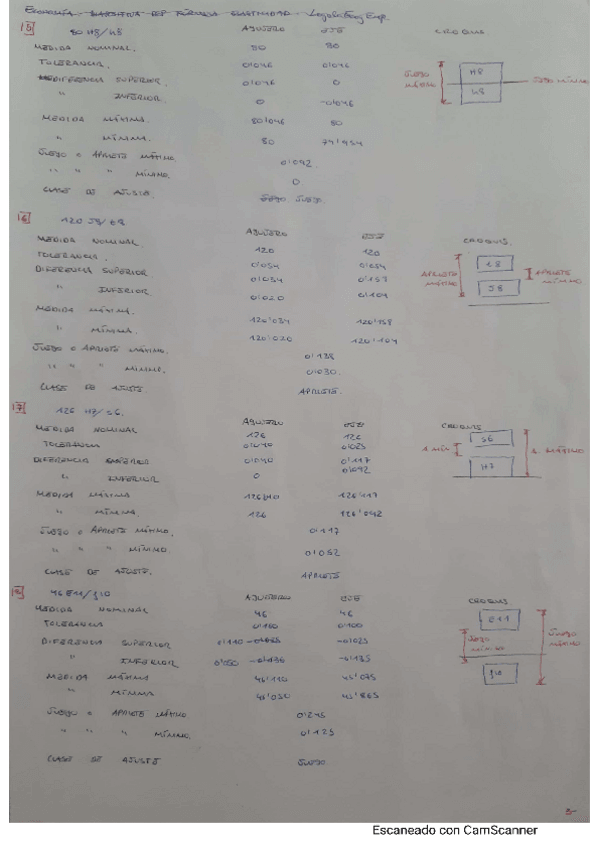 15 80 H8/h8 AGUJERO EJE CROQUIS
MEDIDA NOMINAL. 80 80
TOLERANCIA. 0'046 0'046
DIFERENCIA SUPERIOR. 0'046 0
" INFERIOR 0 -0'046
MEDIDA MÁXIMA. 80'046 80
" MÍNIMA. 80 79'954
JUEGO O APRIETE MÁXIMO. 0'092
" " " MÍNIMO. 0
CLASE DE AJUSTE. JUEGO
JUEGO MÁXIMO H8 h8 JUEGO MÍNIMO
16 120 J8/ AGUJERO EJE CROQUIS.
MEDIDA NOMINAL. 120 120
TOLERANCIA. 0'054 0'054
DIFERENCIA SUPERIOR 0'034
" INFERIOR. 0'020 0'104
MEDIDA MÁXIMA. 120'034 120'158
" MÍNIMA. 120'020 120'104
JUEGO O APRIETE MÁXIMO. 0'138
" " " MÍNIMO. 0'030.
CLASE DE AJUSTE APRIETE.
APRIETE MÁXIMO J8 APRIETE MÍNIMO
17 126 H7/s6. AGUJERO EJE CROQUIS
MEDIDA NOMINAL 126 126
TOLERANCIA 0'040 0'025
DIFERENCIA SUPERIOR 0'040 0'117
" INFERIOR 0 0'092
MEDIDA MÁXIMA 126'040 126'117
" MÍNIMA. 126 126'092
JUEGO O APRIETE MÁXIMO. 0'117
" " " MÍNIMO 0'052
CLASE DE AJUSTE. APRIETE
S6 H7 A. MÁXIMO
18 46 E11/ AGUJERO EJE CROQUIS
MEDIDA NOMINAL 46 46
TOLERANCIA 0'160 0'100
DIFERENCIA SUPERIOR -0'025
" INFERIOR 0'050
MEDIDA MÁXIMA 45'975
" MÍNIMA 45'865
JUEGO O APRIETE MÁXIMO
" " " MÍNIMO. 0'125
CLASE DE AJUSTE JUEGO.
E11 JUEGO MÍNIMO JUEGO MÁXIMO
Escaneado con CamScanner